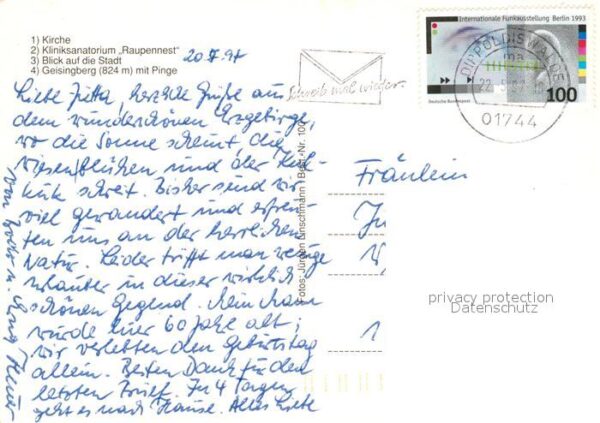 1) Kirche
2) Kliniksanatorium „Raupennest"
3) Blick auf die Stadt
4) Geisingberg (824 m) mit Pinge
Internationale Funkausstellung Berlin 1993
Deutsche Bundespost
100
DIPPOLDISWALDE
01744
Schreib mal wieder.
Liebe Jutta, herzliche Grüße aus
dem wunderschönen Erzgebirge,
wo die Sonne scheint, die
Wiesen blühen und der Kuk-
kuk schreit. Bisher sind wir
viel gewandert und erfreu-
ten uns an der herrlichen
Natur. Leider trifft man wenige
Urlauber in dieser wirklich
schönen Gegend. Mein Mann
wurde hier 60 Jahre alt;
wir verlebten den Geburtstag
allein. Besten Dank für den
letzten Brief. In 4 Tagen
geht es nach Hause. Alles Liebe
Fotos: Jürgen Linschmann Best.-Nr. 100
Fräulein
privacy protection
Datenschutz